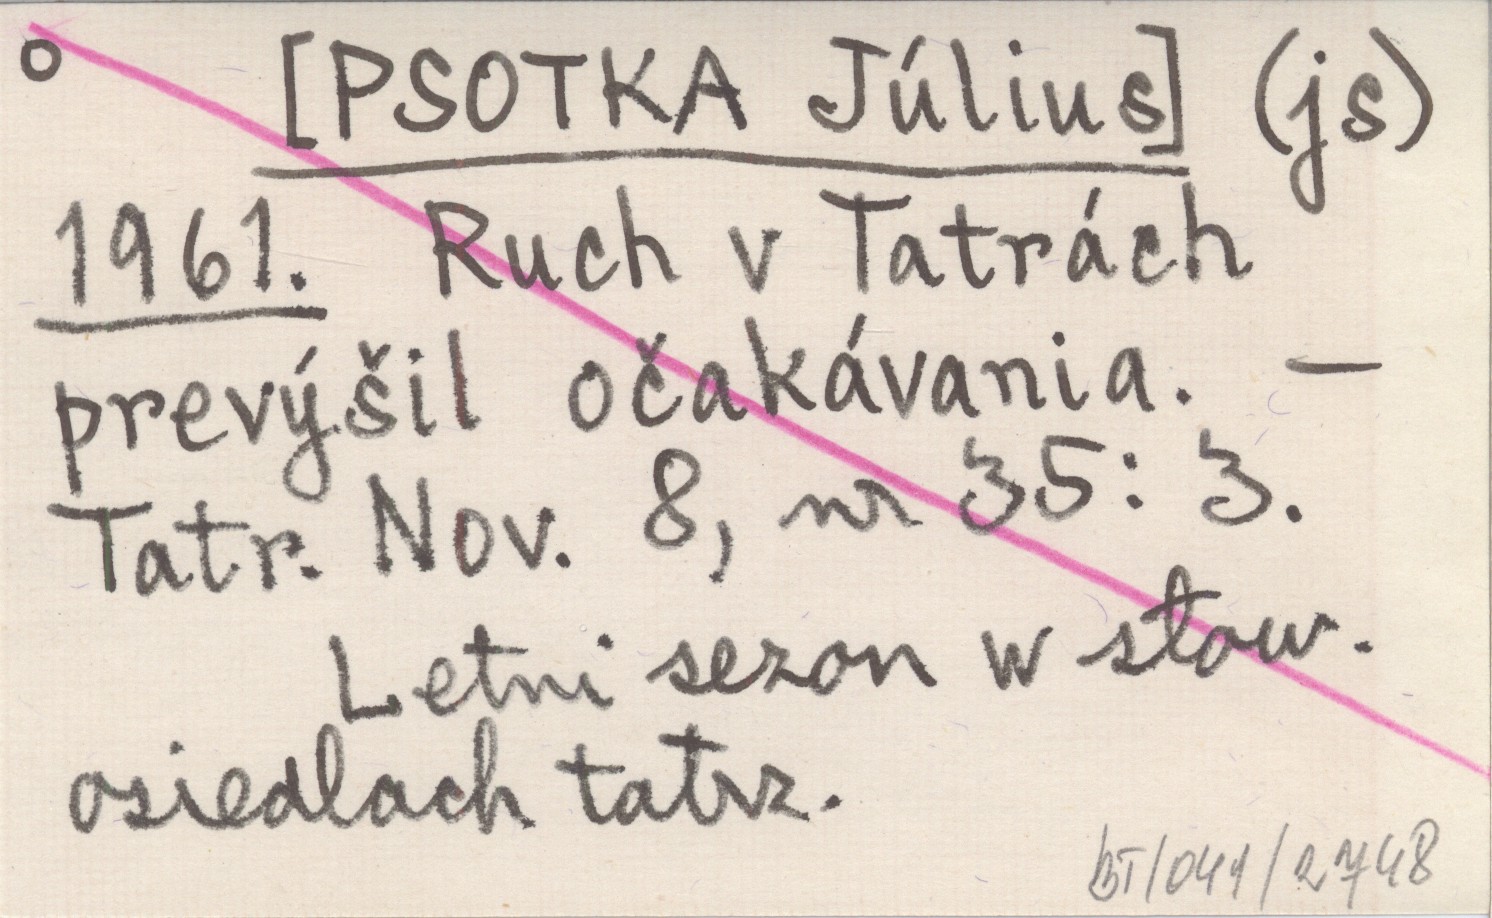 o [PSOTKA Július] (js)
1961. Ruch v Tatrách
prevýšil očakávania. —
Tatr. Nov. 8, nr 35: 3.
Letni sezon w słow.
osiedlach tatrz.
BT/041/2748